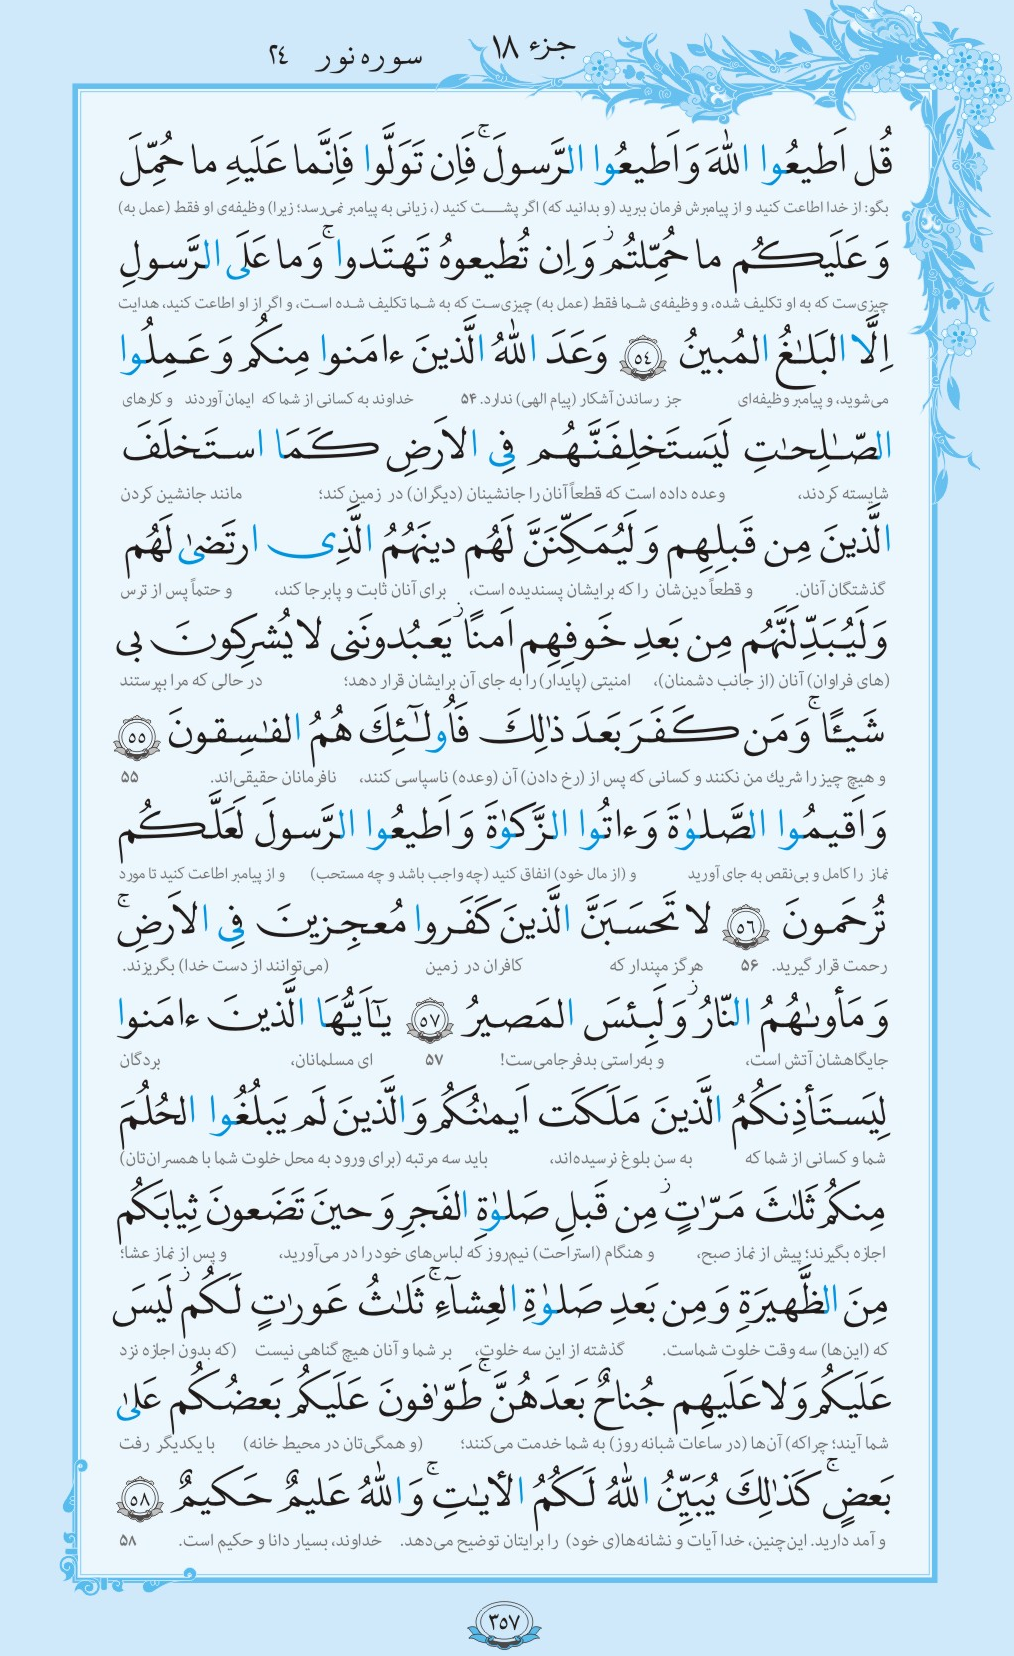 جزء ۱۸
سوره نور ۲٤
قُل اَطیعُوا اللّٰهَ وَ اَطیعُوا الرَّسولَ ۚ فَاِن تَوَلَّوا فَاِنَّما عَلَیهِ ما حُمِّلَ
بگو: از خدا اطاعت کنید و از پیامبرش فرمان ببرید (و بدانید که) اگر پشت کنید (، زیانی به پیامبر نمی‌رسد؛ زیرا) وظیفه‌ی او فقط (عمل به)
وَ عَلَیکُم ما حُمِّلتُم ۖ وَ اِن تُطیعوهُ تَهتَدوا ۚ وَ ما عَلَی الرَّسولِ
چیزی‌ست که به او تکلیف شده، و وظیفه‌ی شما فقط (عمل به) چیزی‌ست که به شما تکلیف شده است، و اگر از او اطاعت کنید، هدایت
اِلَّا البَلٰغُ المُبینُ ﴿٥٤﴾ وَعَدَ اللّٰهُ الَّذینَ ءامَنوا مِنکُم وَ عَمِلُوا
می‌شوید، و پیامبر وظیفه‌ای جز رساندن آشکار (پیام الهی) ندارد. ۵۴ خداوند به کسانی از شما که ایمان آوردند و کارهای
الصّٰلِحٰتِ لَیَستَخلِفَنَّهُم فِی الاَرضِ کَمَا استَخلَفَ
شایسته کردند، وعده داده است که قطعاً آنان را جانشینان (دیگران) در زمین کند؛ مانند جانشین کردن
الَّذینَ مِن قَبلِهِم وَ لَیُمَکِّنَنَّ لَهُم دینَهُمُ الَّذِی ارتَضیٰ لَهُم
گذشتگان آنان. و قطعاً دین‌شان را که برایشان پسندیده است، برای آنان ثابت و پابرجا کند، و حتماً پس از ترس
وَ لَیُبَدِّلَنَّهُم مِن بَعدِ خَوفِهِم اَمنًا ۚ یَعبُدونَنی لا یُشرِکونَ بی
(های فراوان) آنان (از جانب دشمنان)، امنیتی (پایدار) را به جای آن برایشان قرار دهد؛ در حالی که مرا بپرستند
شَیـًٔا ۚ وَ مَن کَفَرَ بَعدَ ذٰلِکَ فَاُولٰٓئِکَ هُمُ الفٰسِقونَ ﴿٥٥﴾
و هیچ چیز را شریك من نکنند و کسانی که پس از (رخ دادن) آن (وعده) ناسپاسی کنند، نافرمانان حقیقی‌اند. ۵۵
وَ اَقیمُوا الصَّلوٰةَ وَ ءاتُوا الزَّکوٰةَ وَ اَطیعُوا الرَّسولَ لَعَلَّکُم
نماز را کامل و بی‌نقص به جای آورید و (از مال خود) انفاق کنید (چه واجب باشد و چه مستحب) و از پیامبر اطاعت کنید تا مورد
تُرحَمونَ ﴿٥٦﴾ لا تَحسَبَنَّ الَّذینَ کَفَروا مُعجِزینَ فِی الاَرضِ ۚ
رحمت قرار گیرید. ۵۶ هرگز مپندار که کافران در زمین (می‌توانند از دست خدا) بگریزند.
وَ مَأوىٰهُمُ النّارُ ۖ وَ لَبِئسَ المَصیرُ ﴿٥٧﴾ یٰٓاَیُّهَا الَّذینَ ءامَنوا
جایگاهشان آتش است، و به‌راستی بدفرجامی‌ست! ۵۷ ای مسلمانان، بردگان
لِیَستَأذِنکُمُ الَّذینَ مَلَکَت اَیمٰنُکُم وَ الَّذینَ لَم یَبلُغُوا الحُلُمَ
شما و کسانی از شما که به سن بلوغ نرسیده‌اند، باید سه مرتبه (برای ورود به محل خلوت شما با همسران‌تان)
مِنکُم ثَلٰثَ مَرّٰتٍ ۚ مِن قَبلِ صَلوٰةِ الفَجرِ وَ حینَ تَضَعونَ ثِیابَکُم
اجازه بگیرند؛ پیش از نماز صبح، و هنگام (استراحت) نیم‌روز که لباس‌های خود را در می‌آورید، و پس از نماز عشا؛
مِنَ الظَّهیرَةِ وَ مِن بَعدِ صَلوٰةِ العِشآءِ ۚ ثَلٰثُ عَورٰتٍ لَکُم ۚ لَیسَ
که (این‌ها) سه وقت خلوت شماست. گذشته از این سه خلوت، بر شما و آنان هیچ گناهی نیست (که بدون اجازه نزد
عَلَیکُم وَ لا عَلَیهِم جُناحٌ بَعدَهُنَّ ۚ طَوّٰفونَ عَلَیکُم بَعضُکُم عَلیٰ
شما آیند؛ چراکه) آن‌ها (در ساعات شبانه روز) به شما خدمت می‌کنند؛ (و همگی‌تان در محیط خانه) با یکدیگر رفت
بَعضٍ ۚ کَذٰلِکَ یُبَیِّنُ اللّٰهُ لَکُمُ الأیٰتِ ۗ وَ اللّٰهُ عَلیمٌ حَکیمٌ ﴿٥٨﴾
و آمد دارید. این‌چنین، خدا آیات و نشانه‌ها(ی خود) را برایتان توضیح می‌دهد. خداوند، بسیار دانا و حکیم است. ۵۸
۳۵۷